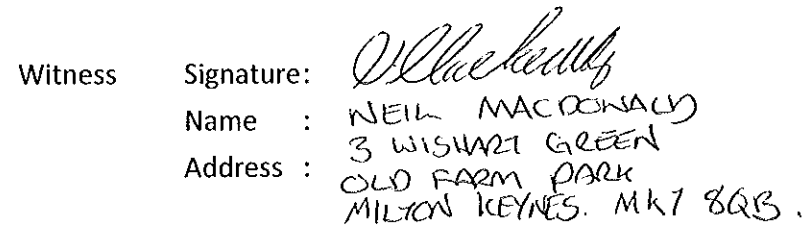 Witness Signature:
Name : NEIL MACDONALD
3 WISHART GREEN
Address : OLD FARM PARK
MILTON KEYNES. MK7 8QB.